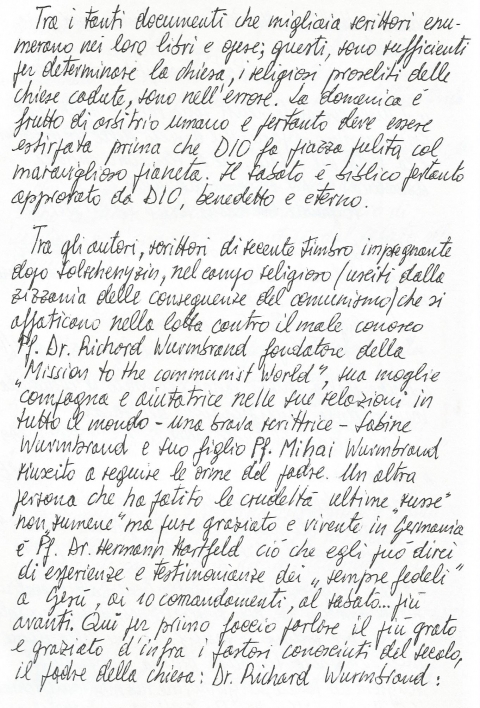 Tra i tanti documenti che migliaia scrittori enu-
merano nei loro libri e opere; questi, sono sufficienti
per determinare la chiesa, i religiosi proseliti delle
chiese cadute, sono nell'errore. La domenica é
frutto di arbitrio umano e pertanto deve essere
estirpata prima che DIO fa piazza pulita col
maraviglioso pianeta. Il sabato é biblico pertanto
approvato da DIO, benedetto e eterno.
Tra gli autori, scrittori di recente timbro impregnante
dopo Solschenyzin, nel campo religioso (usciti dalla
zizzania delle conseguenze del comunismo) che si
affaticono nella lotta contro il male conosco
Pf. Dr. Richard Wurmbrand fondatore della
„Mission to the communist World", sua moglie
compagna e aiutatrice nelle sue relazioni in
tutto il mondo - una brava scrittrice - Sabine
Wurmbrand e suo figlio Pf. Mihai Wurmbrand
riuscito a seguire le orme del padre. Un altra
persona che ha patito le crudeltà ultime „russe"
non „rumene" ma pure graziato e vivente in Germania
é Pf. Dr. Hermann Hartfeld ciò che egli può dirci
di esperienze e testimonianze dei „sempre fedeli"
a Gesù, ai 10 comandamenti, al sabato... più
avanti. Qui per primo faccio parlare il più grato
e graziato d'infra i pastori conosciuti del secolo,
il padre della chiesa: Dr. Richard Wurmbrand: